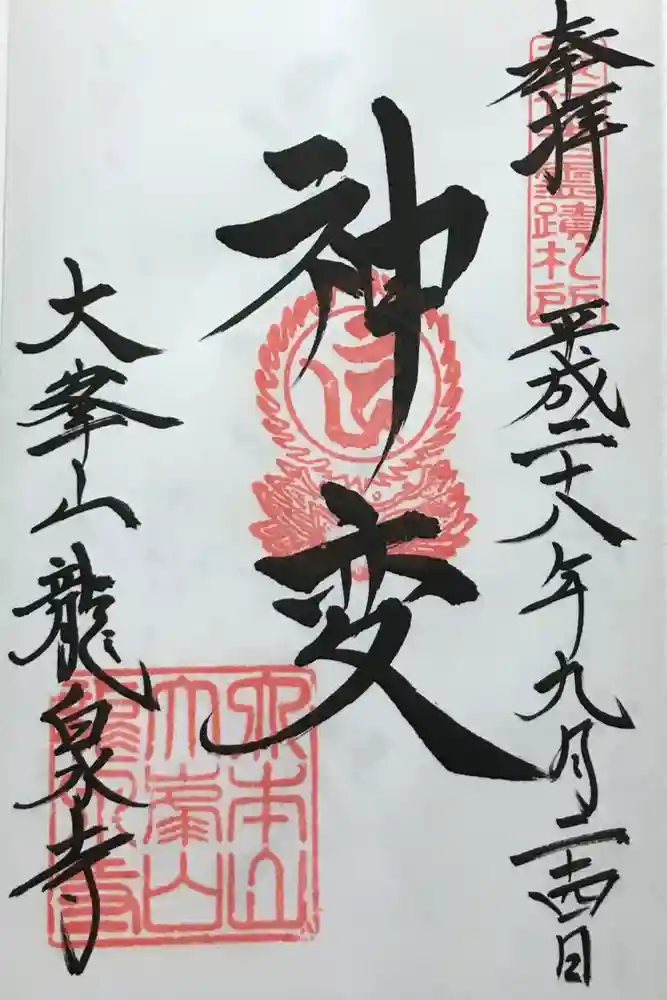 奉拝
役行者霊蹟札所
平成二十八年九月二十四日
神変
大峯山龍泉寺
大本山
大峯山
龍泉寺